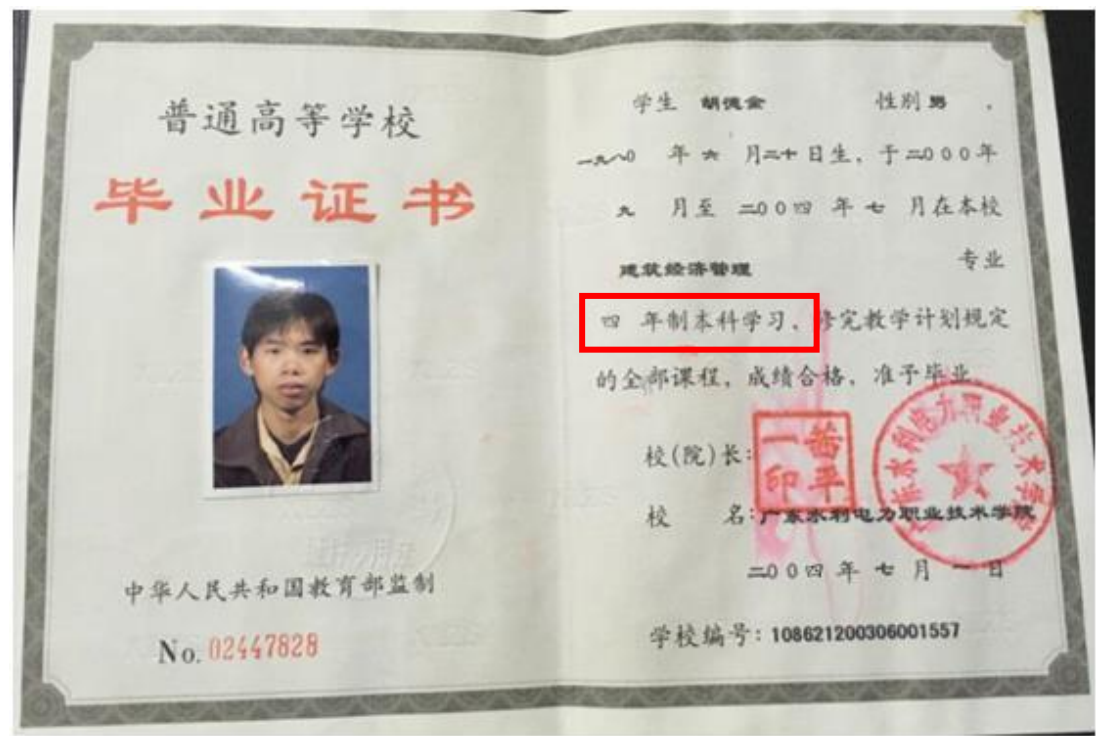 普通高等学校
毕业证书
中华人民共和国教育部监制
No. 02447828
学生 胡德金 性别 男 .
一九八0 年 六 月二十日生, 于二000年
九 月至 二00四 年 七 月在本校
建筑经济管理 专业
四 年制本科学习, 修完教学计划规定
的全部课程, 成绩合格, 准予毕业。
校(院)长:
校 名:广东水利电力职业技术学院
二00四 年 七 月 一 日
学校编号: 108621200306001557
广东水利电力职业技术学院